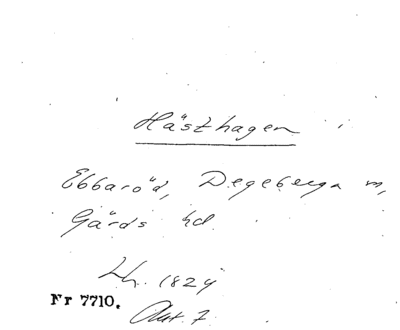 Hästhagen
Ebbaröd, Degeberga sn,
Gärds hd.
Lh. 1829
Nr 7710.
Akt 7